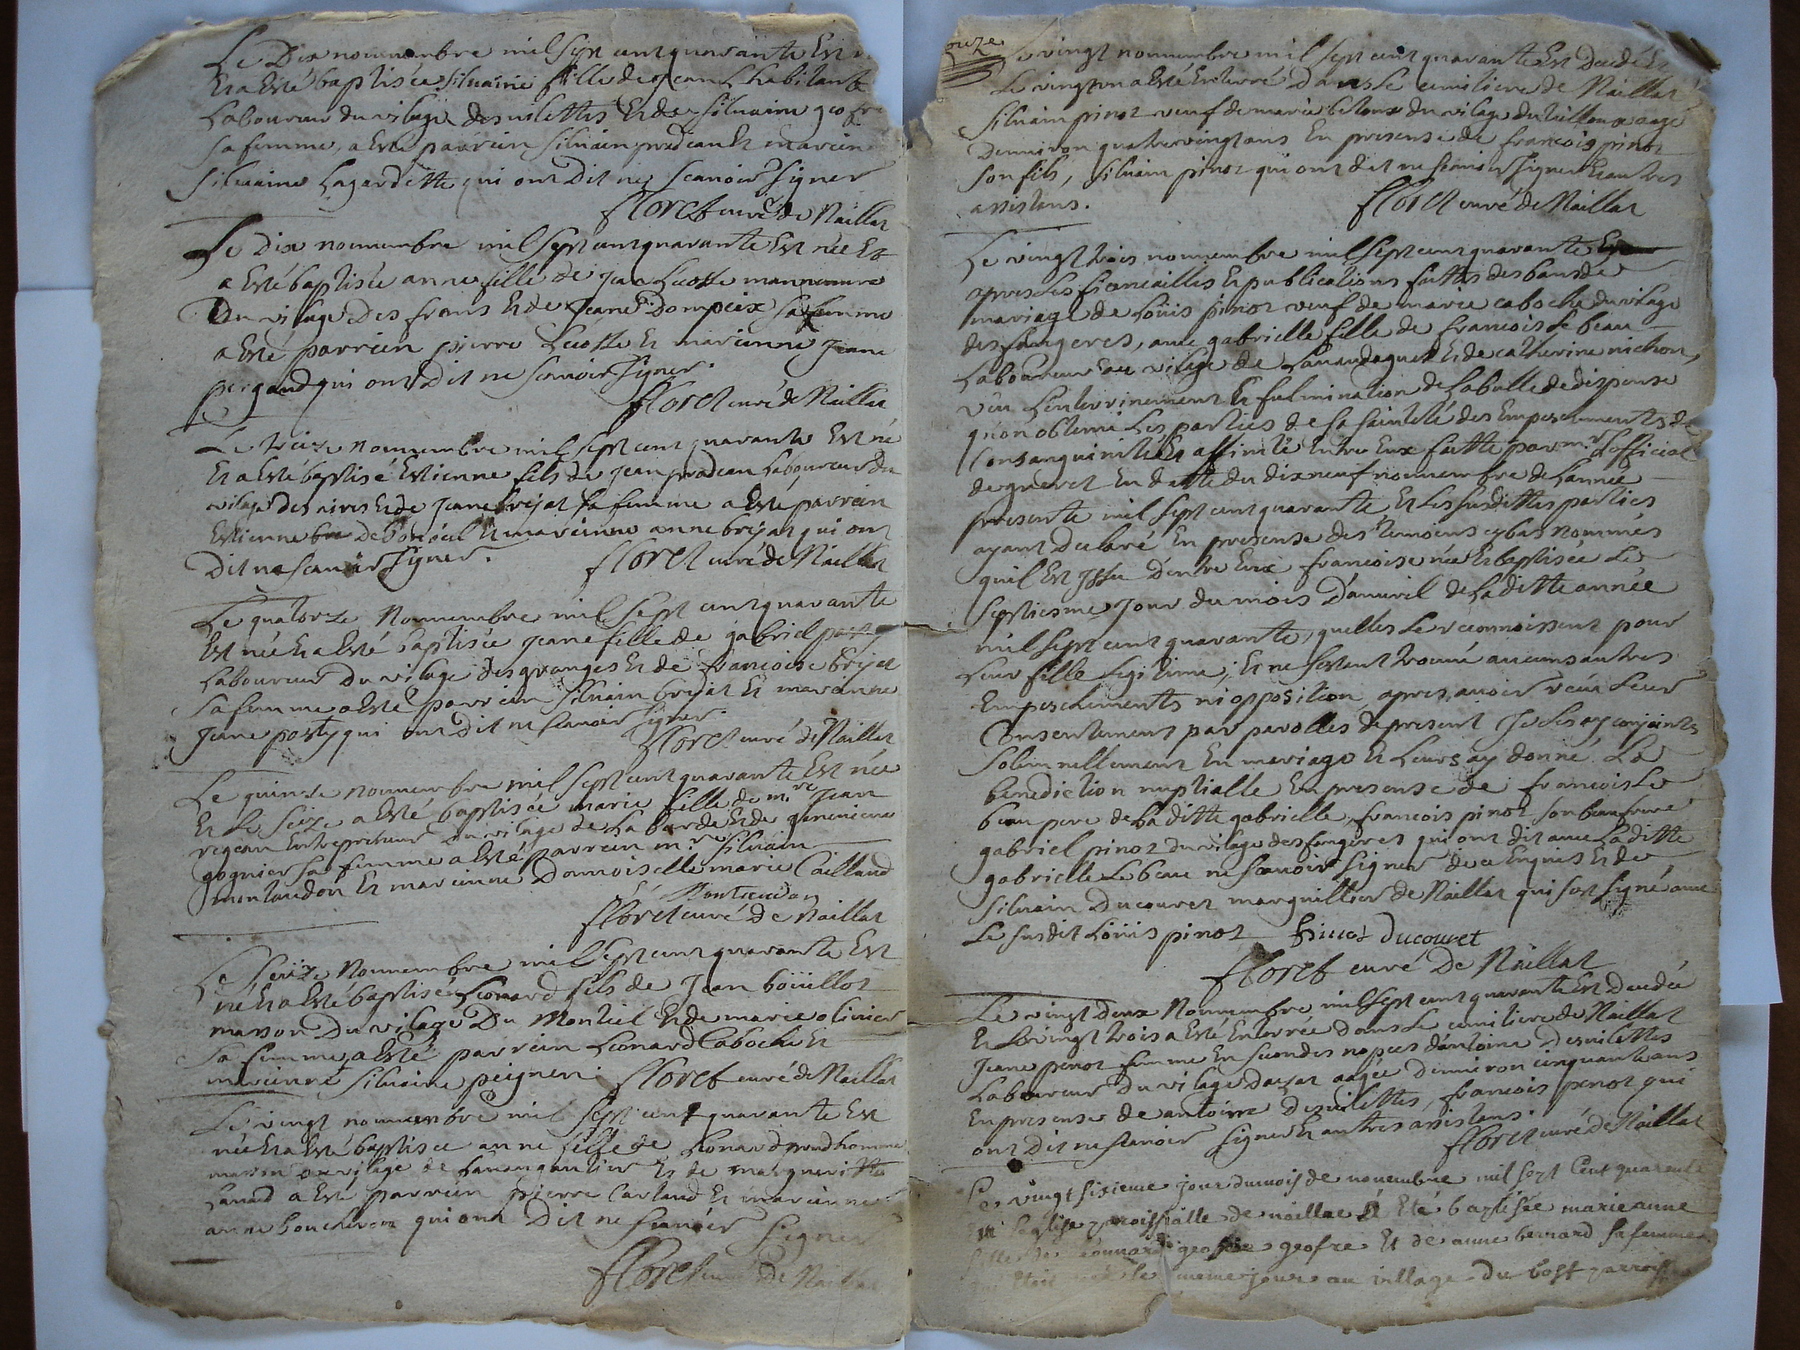 Le Dix nouuembre mil sept cent quarante Est
Et a Esté baptisée siluaine fille de jean Lhabitant
Laboureur du vilage desvilettes Et de siluaine geofre
sa femme, a Esté parrein siluain pradeau Et mareine
siluaine Lagardette qui ont Dit ne scauoir signer
floret curé de Naillat
Le Dix nouuembre mil sept cent quarante Est née Et
a Esté baptisée anne fille de jean Lucotte
Du vilage Des frans Et de jeane Dompeix sa femme
a Esté parrein pierre Lucotte Et mareinne jeane
pergaud qui ont Dit ne scauoir signer.
floret curé de Naillat
Le treize nouuembre mil sept cent quarante Est né
Et a Esté baptisé Estienne fils de jean pradeau Laboureur du
vilage des rives Et de jeane brejat sa femme a Esté parrein
Estienne Et mareinne anne brejat qui ont
Dit ne scauoir signer. floret curé de Naillat
Le quatorze Nouuembre mil sept cent quarante
Est née Et a Esté baptisée jeane fille de gabriel
Laboureur du vilage des granges Et de françoise brejat
sa femme a Esté parrein siluain brejat Et mareinne
jeane qui ont Dit ne scauoir signer.
floret curé de Naillat
Le quinze nouuembre mil sept cent quarante Est née
Et Le seize a Esté baptisée marie fille de m.re jean
Entrepreneur du vilage de La barde Et de
sa femme a Esté parrein m.re siluain
montaudon Et mareinne Damoiselle marie Caillaud
Montaudon
floret curé de Naillat
Le seize Nouuembre mil sept cent quarante Est
né Et a Esté baptisé Leonard fils de jean boüillot
masson Du vilage Du Monteil Et de marie oliuier
sa femme a Esté parrein Leonard Caboche Et
mareinne siluaine peignen. floret curé de Naillat
Le vingt nouuembre mil sept cent quarante Est
née Et a Esté baptisée anne fille de Leonard prudhomme
masson du vilage de Et de margueritte
Lanaud a Esté parrein pierre Carlaud Et mareinne
anne boucheron qui ont Dit ne scauoir signer
floret curé de Naillat
onze
Le vingt nouuembre mil sept cent quarante Est Decedé Et
Le vingt un a Esté Enterré Dans Le cimitiere de Naillat
siluain pinot veuf de marie du vilage du aagé
Denuiron quatrevingt ans En presense de françois pinot
son fils, siluain pinot qui ont dit ne scauoir signer Et autres
assistans. floret curé de Naillat
Le vingt trois nouuembre mil sept cent quarante
apres Les fiancailles Et publications faittes des bans de
mariage de Loüis pinot veuf de marie caboche du vilage
des fangeres, auec gabrielle fille de françois Le beau
Laboureur du vilage de Et de catherine nichon,
veu Lenterinement Et fulmination de La bulle de dispense
qu'on obtenu Les parties de sa sainteté des Empeschements de
Consanguinité Et affinité Entre Eux faitte par m.r L'official
de gueret En datte du dixneuf nouuembre de Lannée
presente mil sept cent quarante Et Les susdittes parties
ayant Declaré En presense des temoins cy bas nommés
quil Est Jssu D'entre Eux françoise née Et baptisée Le
septiesme Jour du mois D'auuril de La ditte année
mil sept cent quarante, quelles Le reconnoissent pour
Leur fille Legitime; Et ne sestant trouué aucuns autres
Empeschements ni opposition, apres auoir receu Leur
Consentement par parolles de present Je Les ay conjoints
solemnellement En mariage Et Leurs ay donné La
benediction nuptialle En presense de françois Le
beau pere de La ditte gabrielle, françois pinot son beaufrere
gabriel pinot du vilage des fangeres qui ont dit auec La ditte
gabrielle Le beau ne scauoir signer de ce Enquis Et de
siluain Ducouret marguillier de Naillat qui sest signé auec
Le susdit Loüis pinot Pinot Ducouret
floret curé De Naillat
Le vingt deux Nouuembre mil sept cent quarante Est Decedée
Et Le vingt trois a Esté Enterrée dans Le cimitiere de Naillat
Jeane pinot femme En secondes nopces d'antoine Desvilettes
Laboureur du vilage aagée Denuiron cinquante ans
En presense de antoine Desvilettes, françois pinot qui
ont Dit ne scauoir signer Et autres assistans.
floret curé de Naillat
Le vingt sixieme jour du mois de nouembre mil sept Cent quarante
En l'eglise paroissialle de naillat a Eté baptisée marie anne
fille de Léonard geofre Et de anne bernard sa femme
le meme jour au village Du bost parroisse